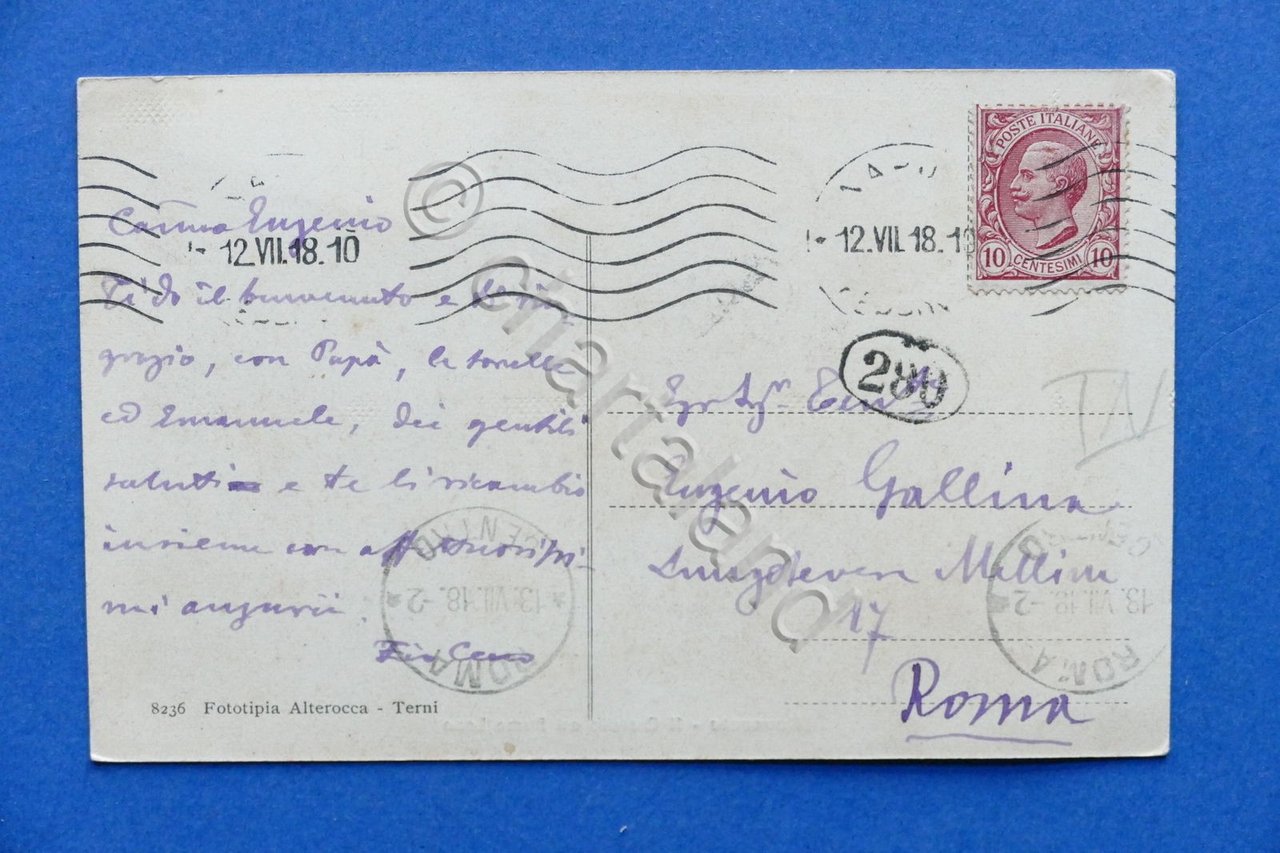 Carmo Eugenio
!- 12.VII.18.10
Ti do il benvenuto e ti rin-
grazio, con Papà, le sorelle
ed Emanuele, dei gentili
saluti e te li ricambio
insieme con affettuosissi-
mi augurii.
Zio
8236 Fototipia Alterocca - Terni
POSTE ITALIANE
10 CENTESIMI 10
!- 12.VII.18.1
280
IV
Eugenio Gallina
Lungotevere Mellini
17
Roma
ROMA CENTRO
13.VII.18.-2
ROMA
13.VII.18.-2
© Chartaland